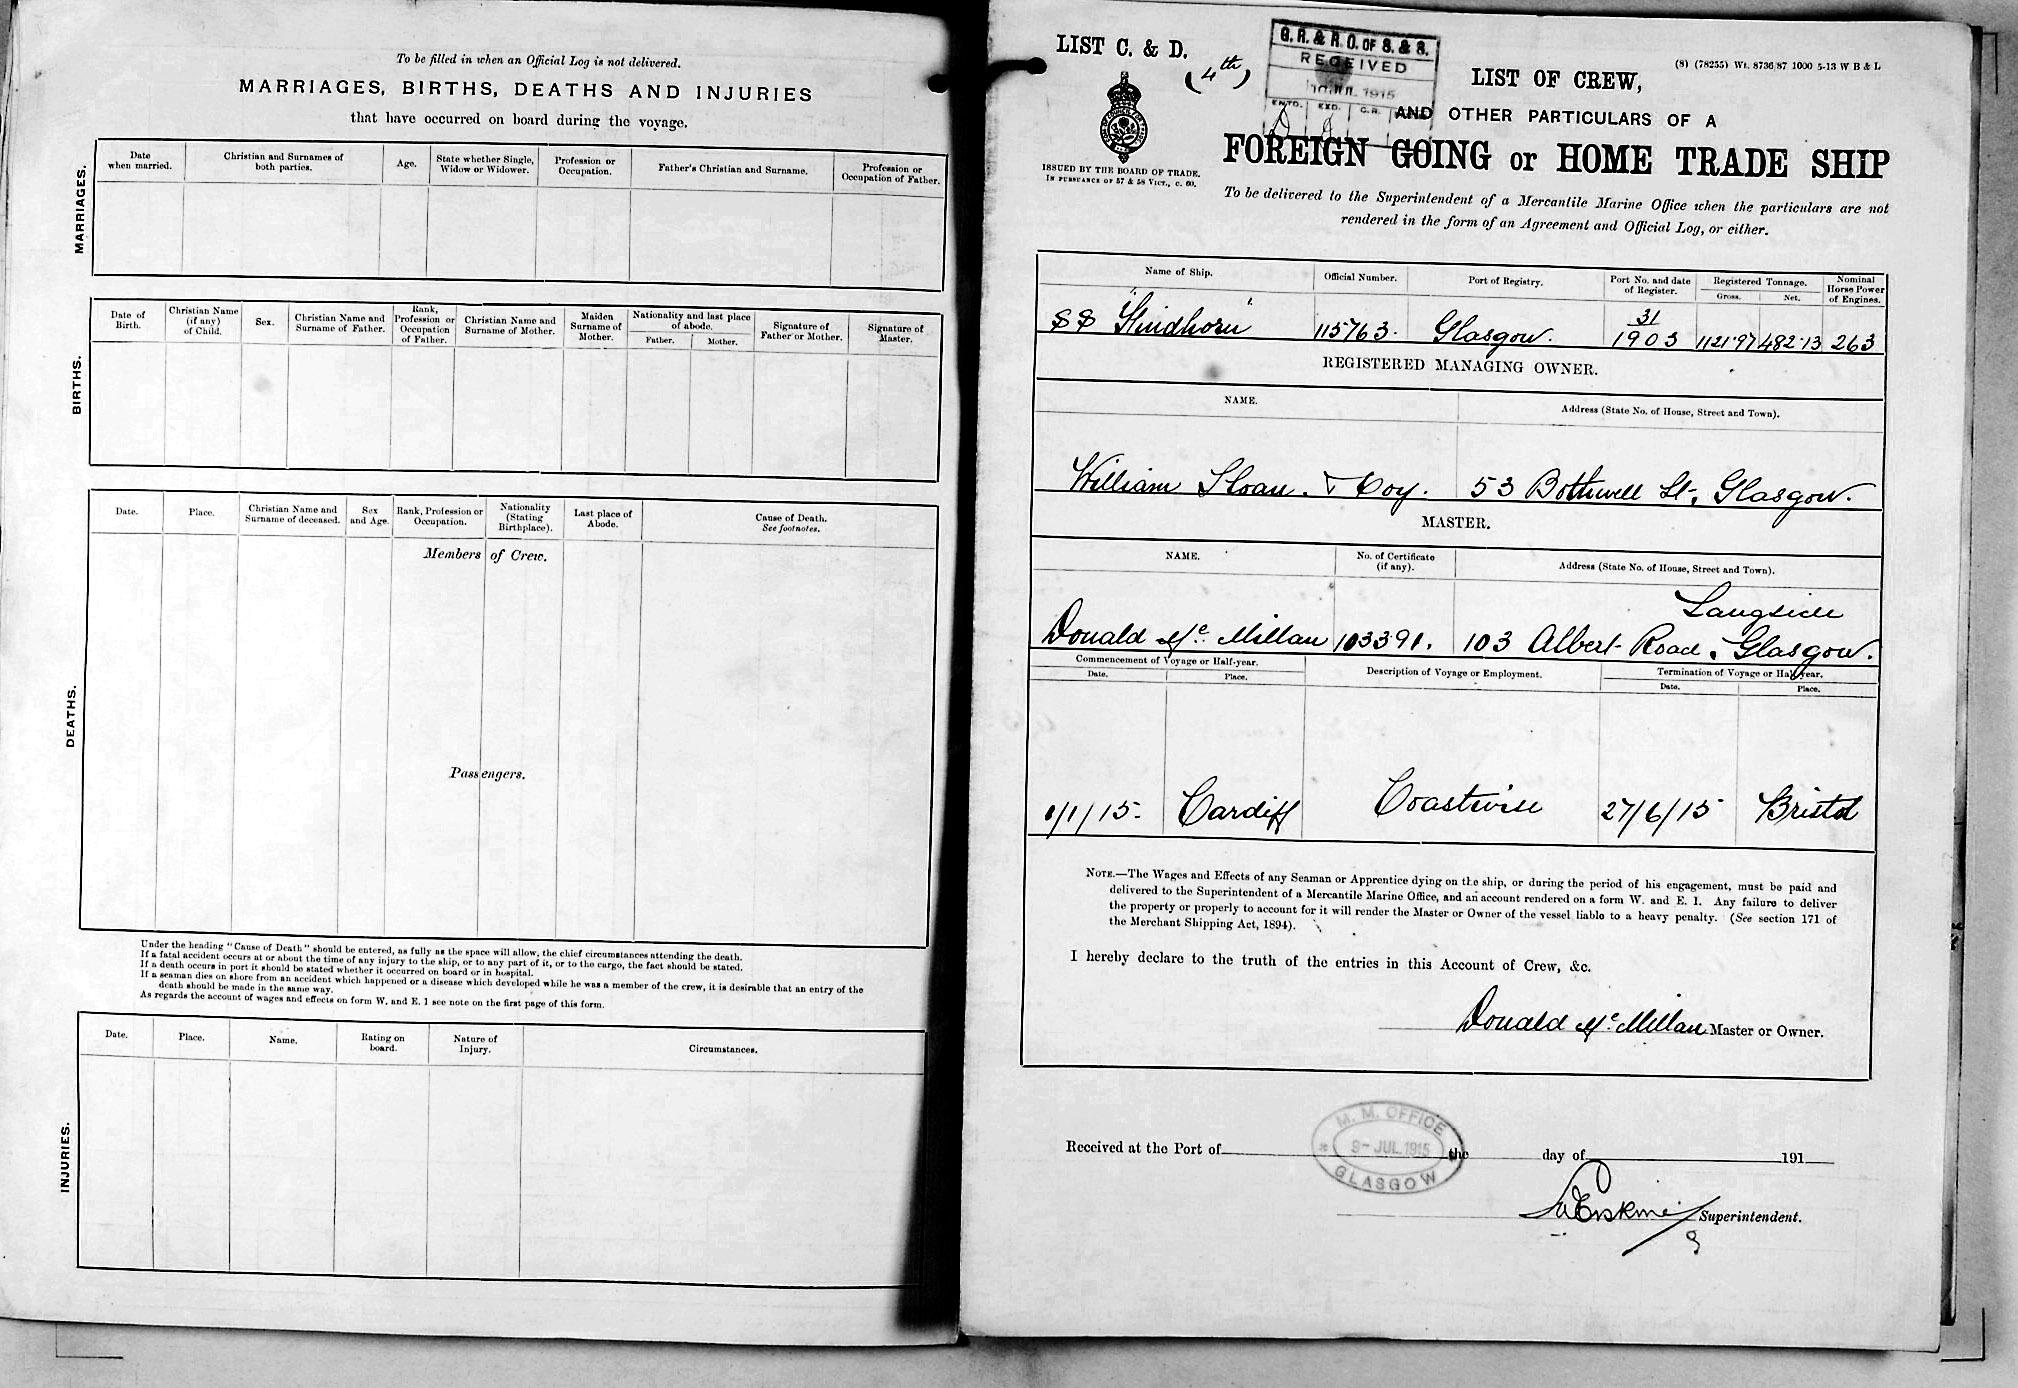 To be filled in when an Official Log is not delivered.
MARRIAGES, BIRTHS, DEATHS AND INJURIES
that have occurred on board during the voyage.
MARRIAGES.
Date when married.
Christian and Surnames of both parties.
Age.
State whether Single, Widow or Widower.
Profession or Occupation.
Father's Christian and Surname.
Profession or Occupation of Father.
BIRTHS.
Date of Birth.
Christian Name (if any) of Child.
Sex.
Christian Name and Surname of Father.
Rank, Profession or Occupation of Father.
Christian Name and Surname of Mother.
Maiden Surname of Mother.
Nationality and last place of abode.
Father.
Mother.
Signature of Father or Mother.
Signature of Master.
DEATHS.
Date.
Place.
Christian Name and Surname of deceased.
Sex and Age.
Rank, Profession or Occupation.
Nationality (Stating Birthplace).
Last place of Abode.
Cause of Death.
See footnotes.
Members of Crew.
Passengers.
Under the heading "Cause of Death" should be entered, as fully as the space will allow, the chief circumstances attending the death.
If a fatal accident occurs at or about the time of any injury to the ship, or to any part of it, or to the cargo, the fact should be stated.
If a death occurs in port it should be stated whether it occurred on board or in hospital.
If a seaman dies on shore from an accident which happened or a disease which developed while he was a member of the crew, it is desirable that an entry of the
death should be made in the same way.
As regards the account of wages and effects on form W. and E. 1 see note on the first page of this form.
INJURIES.
Date.
Place.
Name.
Rating on board.
Nature of Injury.
Circumstances.
LIST C. & D.
(4th)
G. R. & R. O. OF S. & S.
RECEIVED
10 JUL 1915
ENTD. EXD. C.R.
(8) (78255) Wt. 8736/87 1000 5-13 W B & L
ISSUED BY THE BOARD OF TRADE.
IN PURSUANCE OF 57 & 58 VICT., C. 60.
LIST OF CREW,
AND OTHER PARTICULARS OF A
FOREIGN GOING or HOME TRADE SHIP
To be delivered to the Superintendent of a Mercantile Marine Office when the particulars are not
rendered in the form of an Agreement and Official Log, or either.
Name of Ship.
Official Number.
Port of Registry.
Port No. and date of Register.
Registered Tonnage.
Gross.
Net.
Nominal Horse Power of Engines.
SS "Findhorn" 115763. Glasgow. 31/1903 1121.97 482.13 263
REGISTERED MANAGING OWNER.
NAME.
Address (State No. of House, Street and Town).
William Sloan. & Coy. 53 Bothwell St, Glasgow.
MASTER.
NAME.
No. of Certificate (if any).
Address (State No. of House, Street and Town).
Langside
Donald McMillan 103391. 103 Albert Road, Glasgow.
Commencement of Voyage or Half-year.
Date.
Place.
Description of Voyage or Employment.
Termination of Voyage or Half-year.
Date.
Place.
1/1/15. Cardiff Coastwise 27/6/15 Bristol
NOTE.—The Wages and Effects of any Seaman or Apprentice dying on the ship, or during the period of his engagement, must be paid and
delivered to the Superintendent of a Mercantile Marine Office, and an account rendered on a form W. and E. 1. Any failure to deliver
the property or properly to account for it will render the Master or Owner of the vessel liable to a heavy penalty. (See section 171 of
the Merchant Shipping Act, 1894).
I hereby declare to the truth of the entries in this Account of Crew, &c.
Donald McMillan Master or Owner.
M. M. OFFICE
9-JUL.1915
GLASGOW
Received at the Port of the day of 191
Erskine Superintendent.